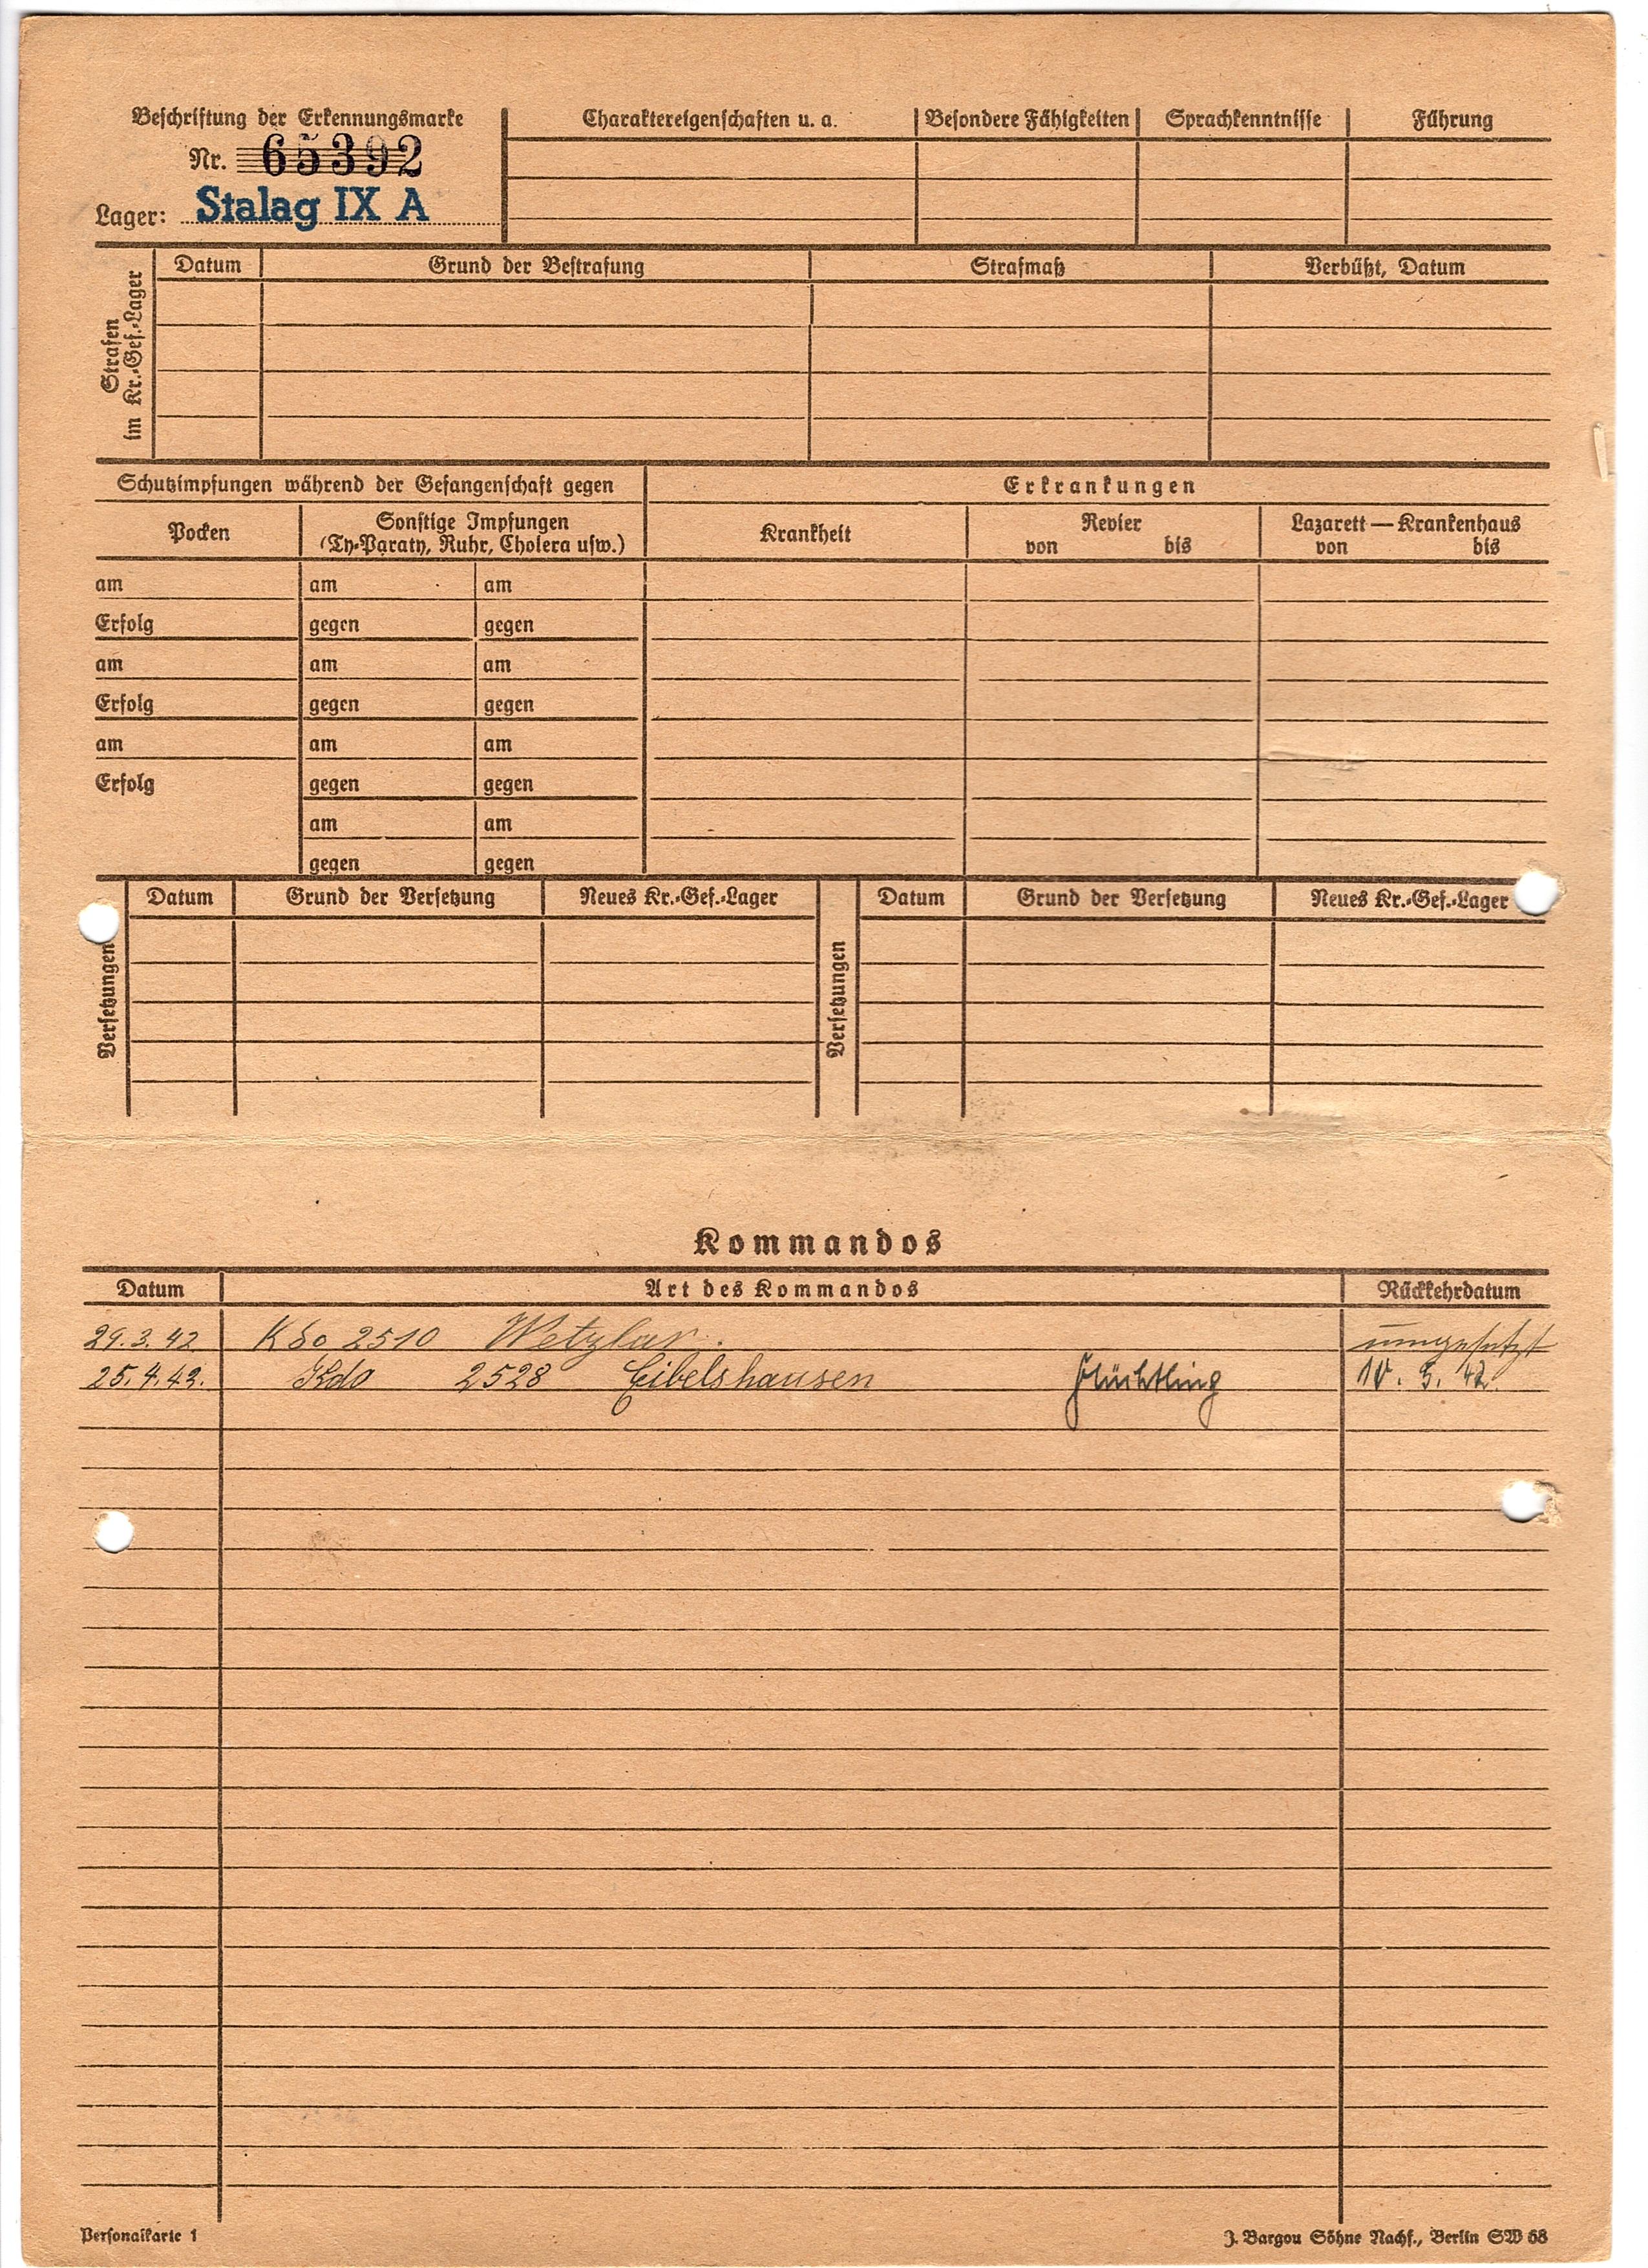 Beschriftung der Erkennungsmarke
Nr. 65392
Lager: Stalag IX A
Charaktereigenschaften u. a. Besondere Fähigkeiten Sprachkenntnisse Führung
Strafen
im Kr.-Gef.-Lager
Datum Grund der Bestrafung Strafmaß Verbüßt, Datum
Schutzimpfungen während der Gefangenschaft gegen Erkrankungen
Pocken Sonstige Impfungen Krankheit Revier Lazarett — Krankenhaus
(Ty-Paraty, Ruhr, Cholera usw.) von bis von bis
am am am
Erfolg gegen gegen
am am am
Erfolg gegen gegen
am am am
Erfolg gegen gegen
am am
gegen gegen
Versetzungen Datum Grund der Versetzung Neues Kr.-Gef.-Lager Versetzungen Datum Grund der Versetzung Neues Kr.-Gef.-Lager
Kommandos
Datum Art des Kommandos Rückkehrdatum
29.3.42 Kdo 2510 Wetzlar. umgesetzt
25.4.42. Kdo 2528 Eibelshausen Flüchtling 10. 5. 42.
Personalkarte 1 J. Bargou Söhne Nachf., Berlin SW 68